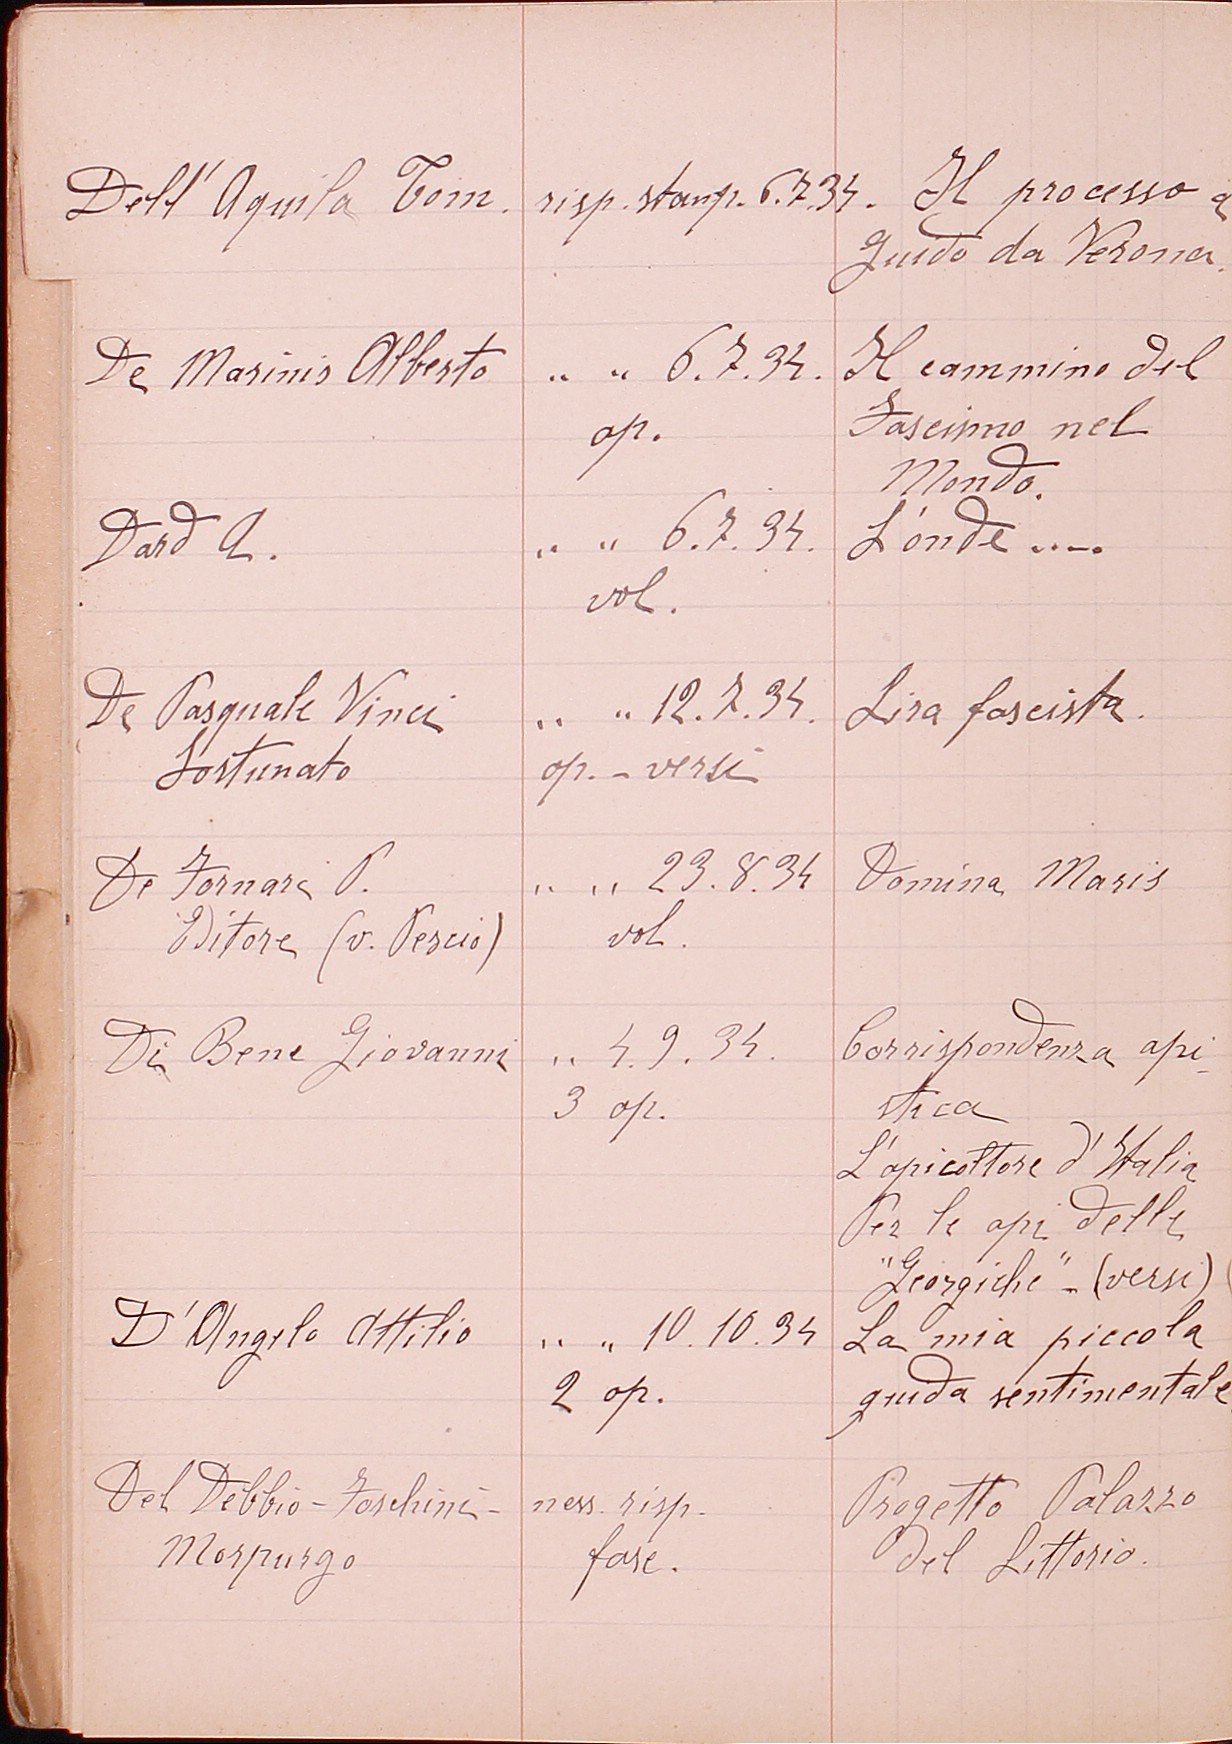 Dell'Aquila Tom. risp. stamp. 6.7.34. Il processo a
Guido da Verona.
De Marinis Alberto " " 6.7.34. Il cammino del
op. Fascismo nel
Mondo.
Dard A. " " 6.7.34. L'onde ....
vol.
De Pasquale Vinci " " 12.7.34. Lira fascista.
Fortunato op. - versi
De Fornari P. " " 23.8.34 Domina Maris
Editore (v. Pescio) vol.
Di Bene Giovanni " 4.9.34. Corrispondenza api-
3 op. stica
L'apicoltore d'Italia
Per le api delle
"Georgiche" - (versi)
D'Angelo Attilio " " 10.10.34 La mia piccola
2 op. guida sentimentale
Del Debbio - Foschini - ness. risp. Progetto Palazzo
Morpurgo fasc. del Littorio.